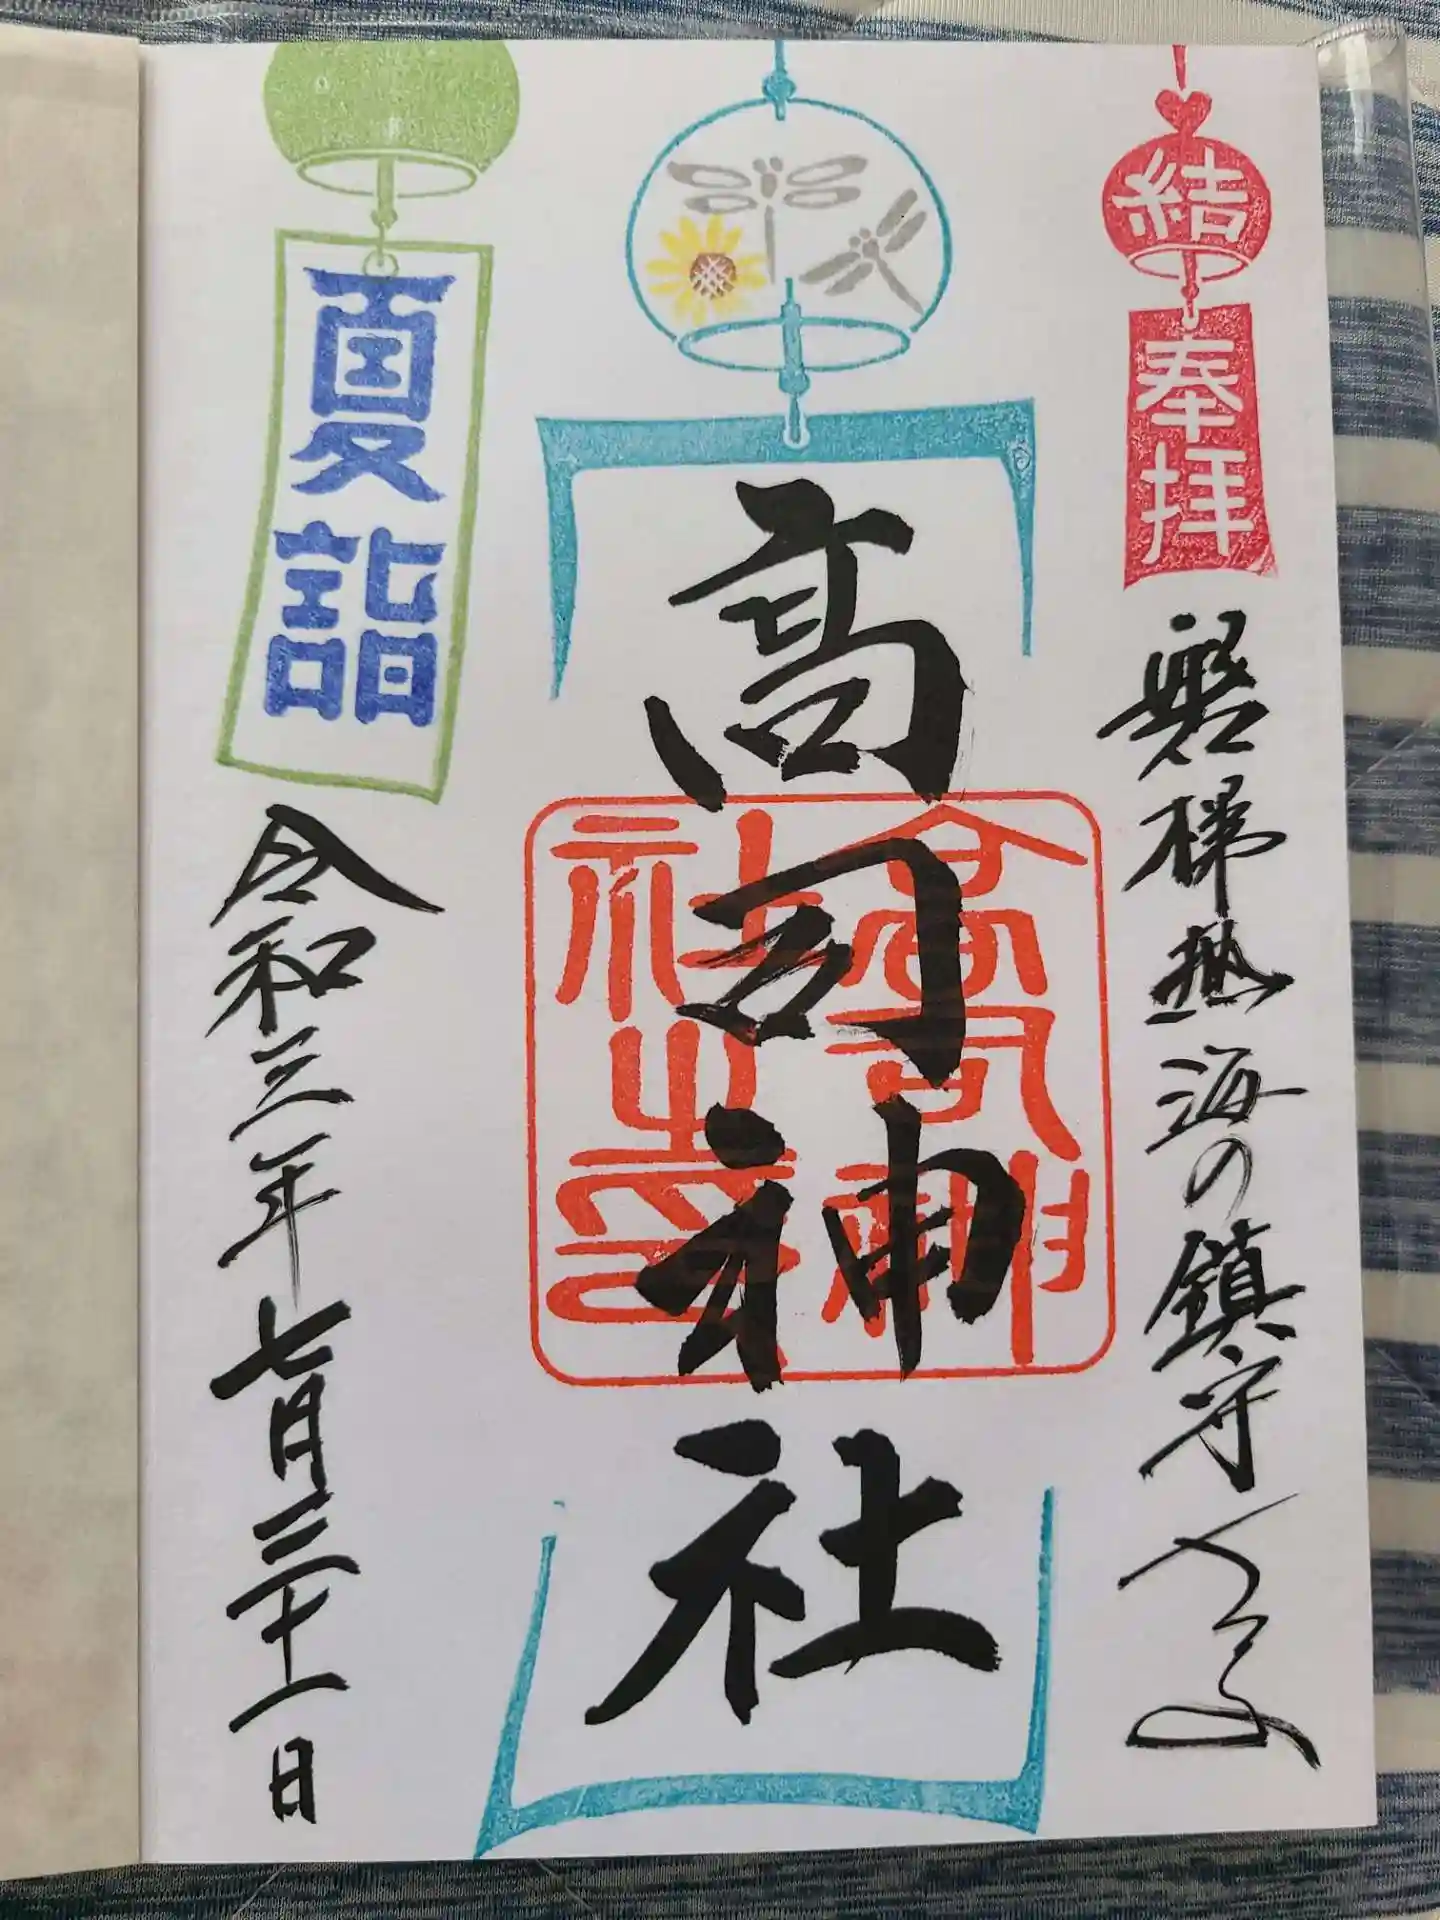 結
奉拝
磐梯熱海の鎮守
高司神社
高司神
社之印
夏詣
令和三年七月三十一日